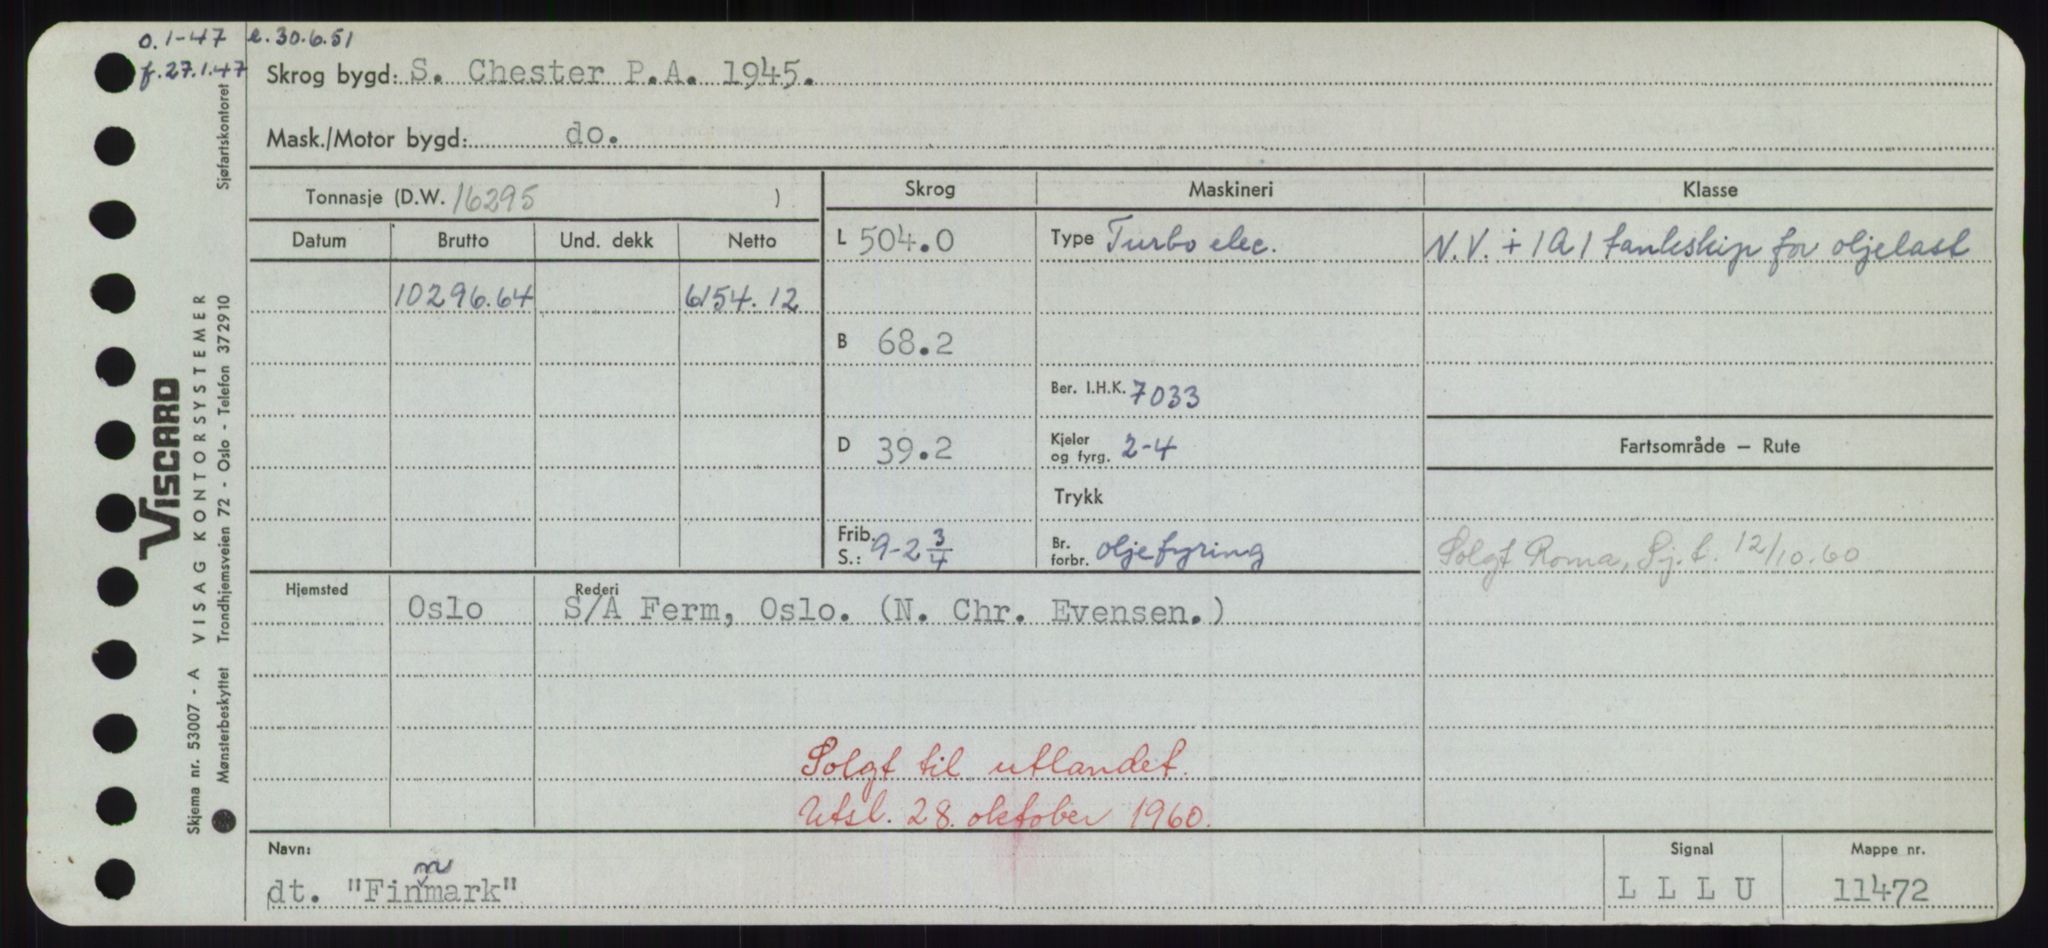 o. 1-47 e. 30.6.51
f. 27.1.47
Skrog bygd: S. Chester P.A. 1945.
Mask./Motor bygd: do.
Tonnasje (D.W. 16295 )
Skrog Maskineri Klasse
Datum Brutto Und. dekk Netto
L 504.0 Type Turbo elec. N.V. + 1A1 tankskip for oljelast
10296.64 6154.12
B 68.2
Ber. I.H.K. 7033
D 39.2 Kjeler og fyrg. 2-4
Fartsområde — Rute
Trykk
Frib. S.: 9-2 3/4 Br. forbr. oljefyring
Solgt Roma, Sj.t. 12/10.60
Hjemsted Rederi
Oslo S/A Ferm, Oslo. (N. Chr. Evensen.)
Solgt til utlandet.
Utsl. 28. oktober 1960.
Navn: Signal Mappe nr.
n
dt. "Finmark" L L L U 11472
VISCARD
Skjema nr. 53007 - A VISAG KONTORSYSTEMER
Mønsterbeskyttet Trondhjemsveien 72 - Oslo - Telefon 372910 Sjøfartskontoret